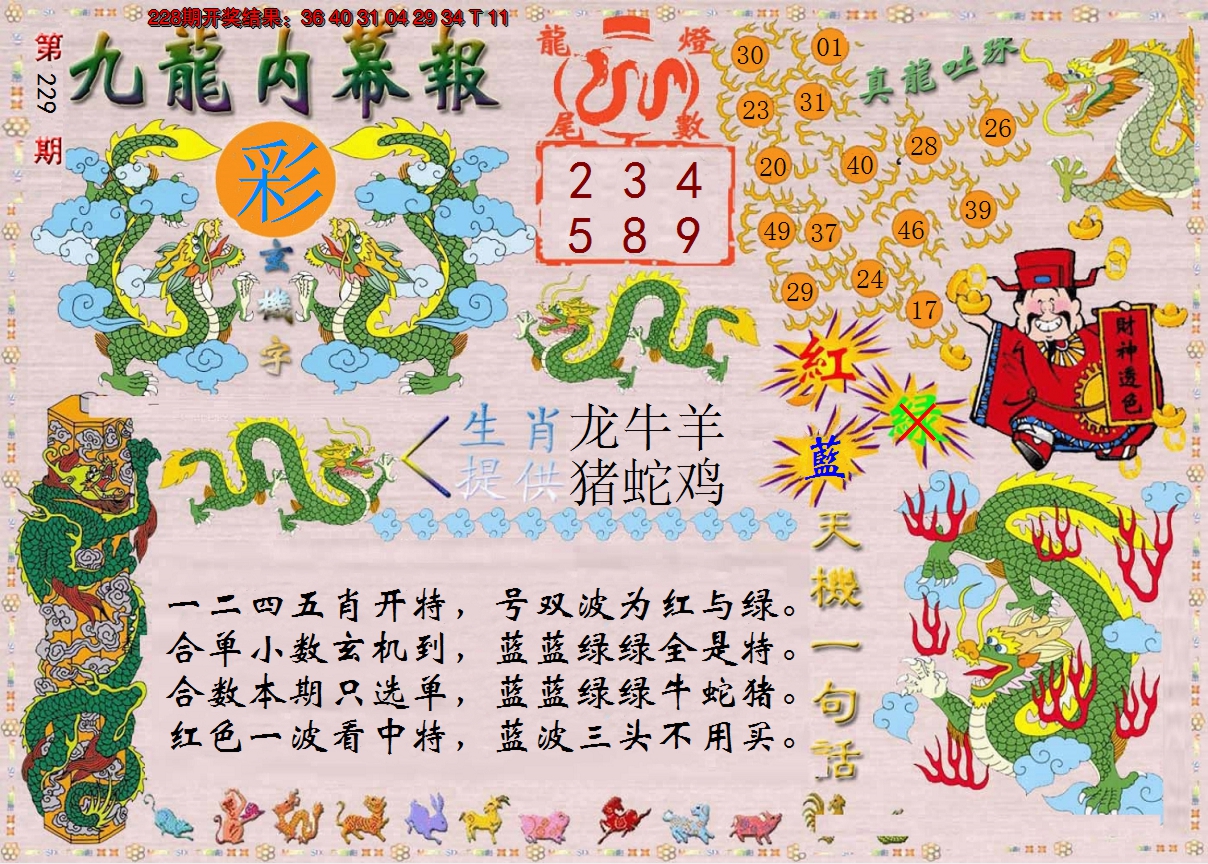 228期开奖结果：36 40 31 04 29 34 T 11
第229期
九龍内幕報
彩
玄機字
龍燈尾數
2 3 4
5 8 9
真龍吐珠
30
01
23
31
28
26
20
40
39
49
37
46
29
24
17
財神透色
紅
绿
藍
生肖提供
龙牛羊
猪蛇鸡
天機一句話
一二四五肖开特，号双波为红与绿。
合单小数玄机到，蓝蓝绿绿全是特。
合数本期只选单，蓝蓝绿绿牛蛇猪。
红色一波看中特，蓝波三头不用买。